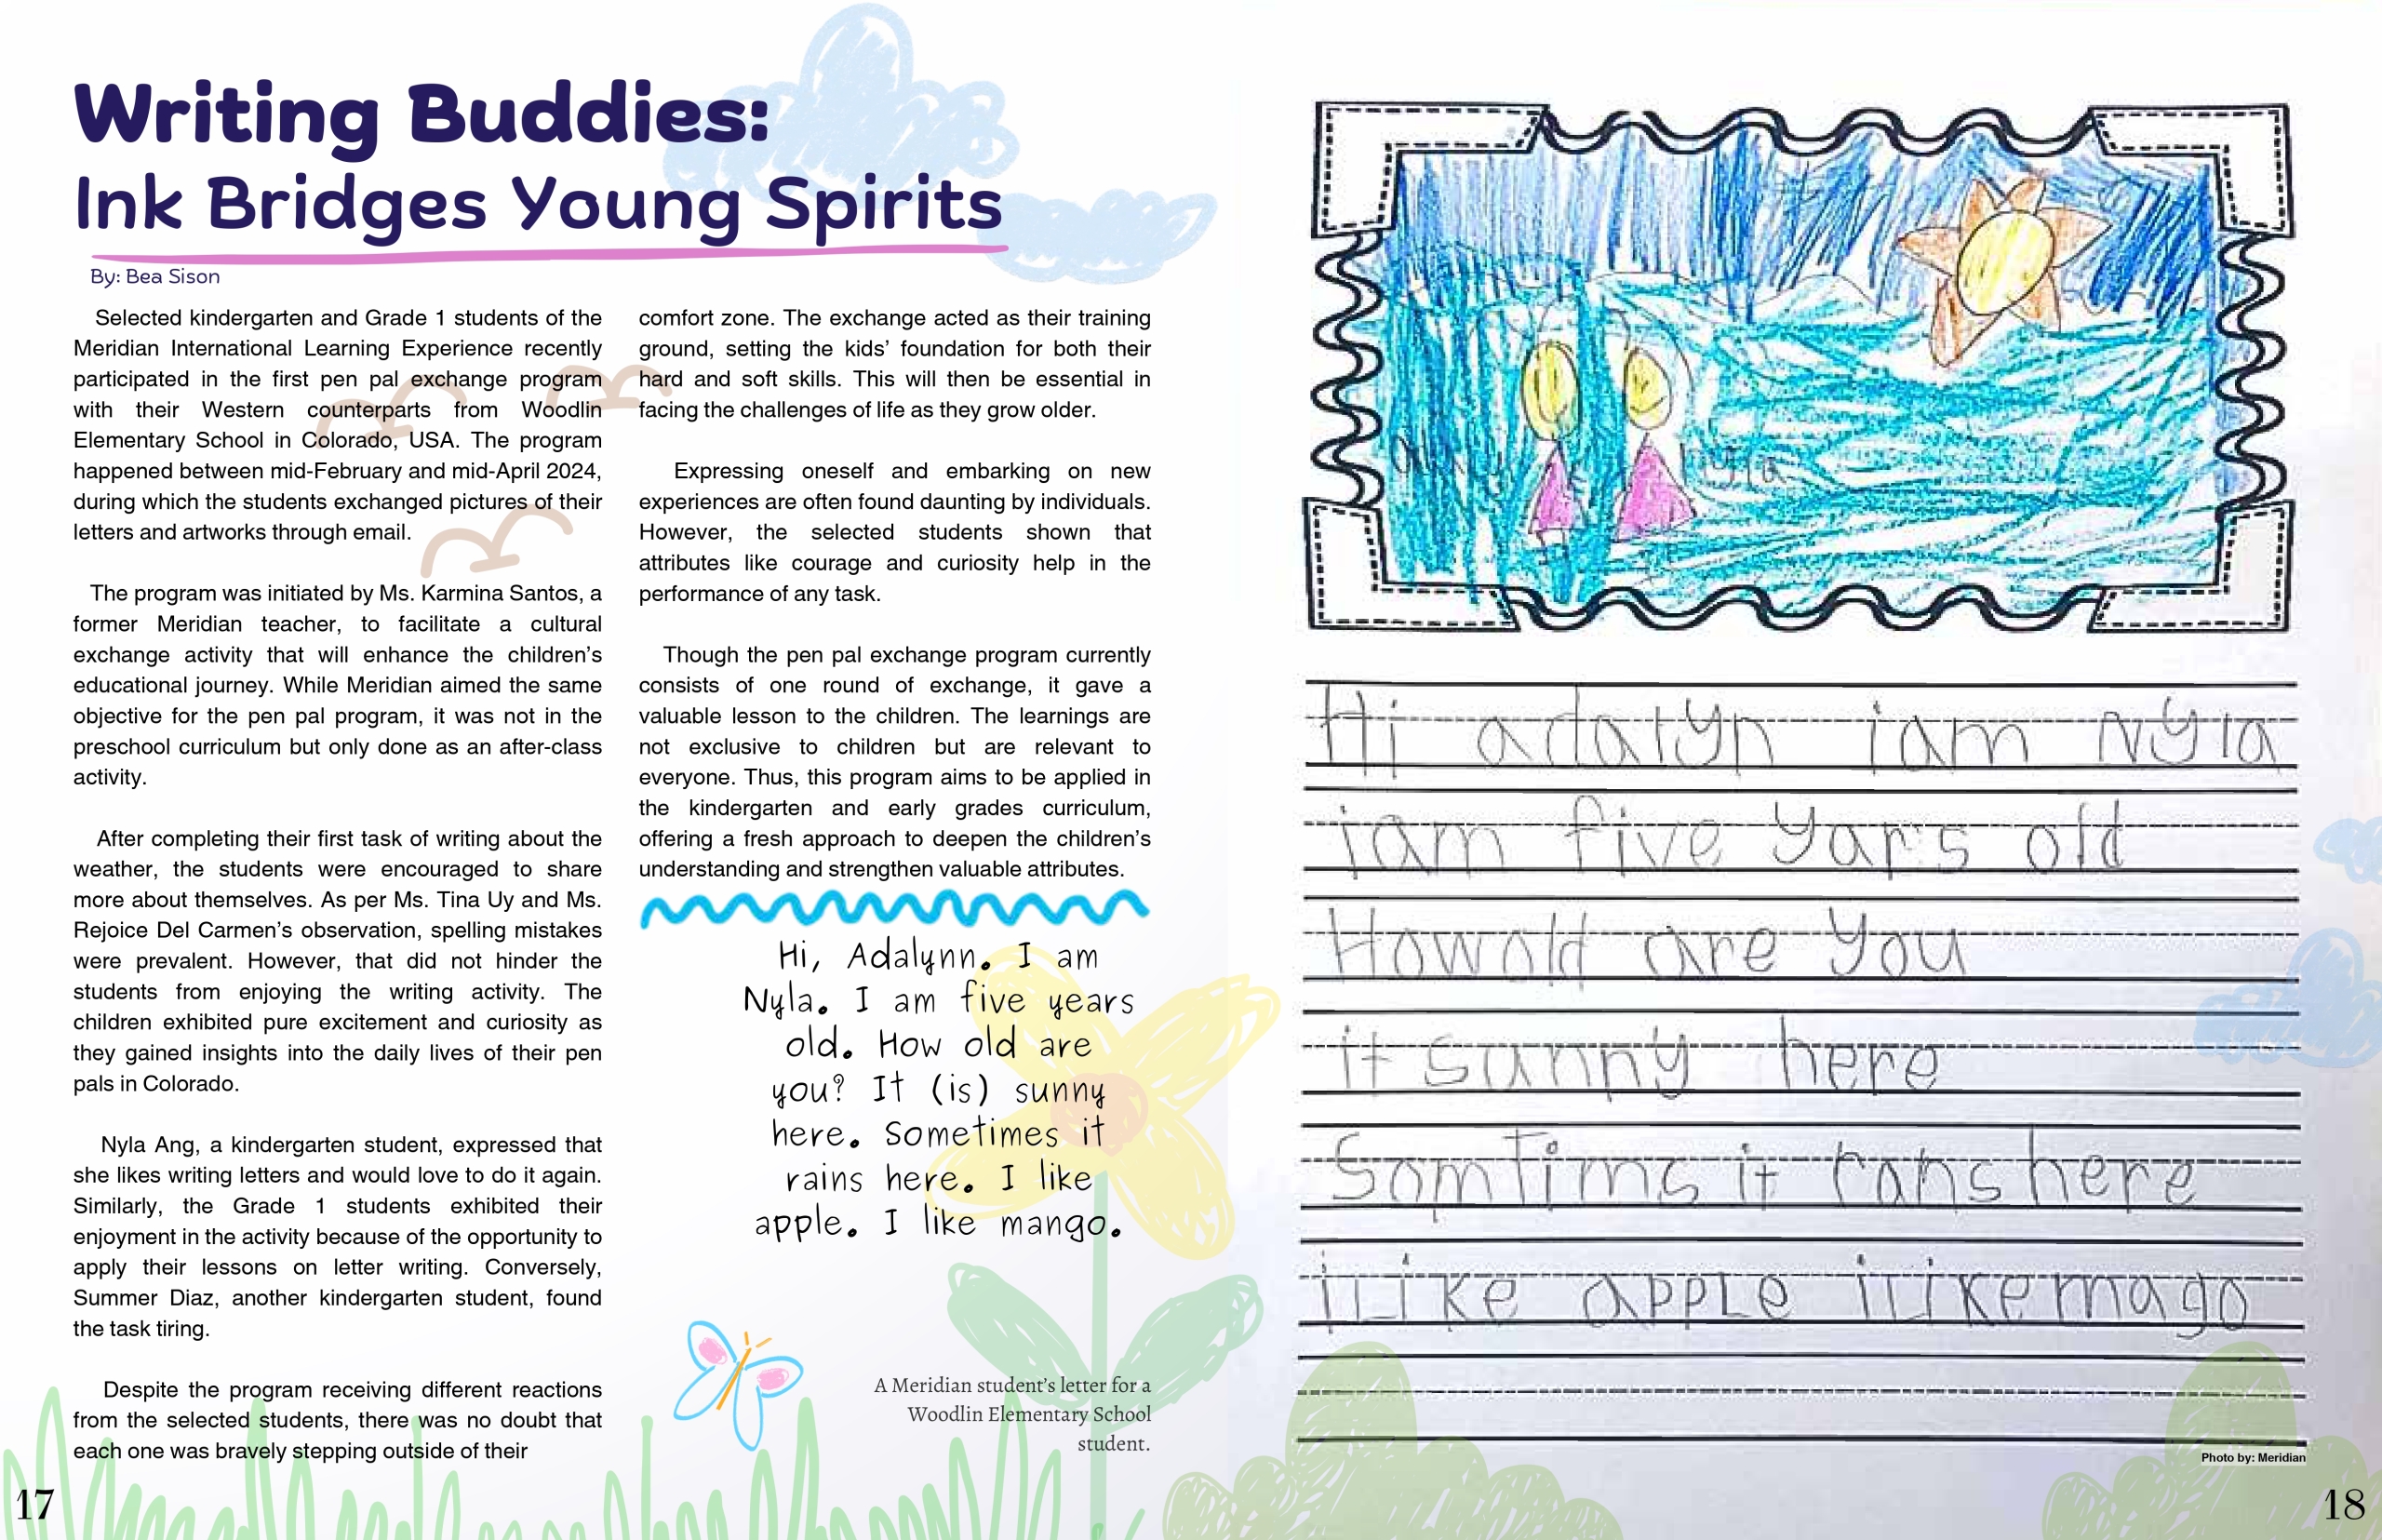 Writing Buddies:
Ink Bridges Young Spirits
By: Bea Sison
Selected kindergarten and Grade 1 students of the
Meridian International Learning Experience recently
participated in the first pen pal exchange program
with their Western counterparts from Woodlin
Elementary School in Colorado, USA. The program
happened between mid-February and mid-April 2024,
during which the students exchanged pictures of their
letters and artworks through email.
The program was initiated by Ms. Karmina Santos, a
former Meridian teacher, to facilitate a cultural
exchange activity that will enhance the children's
educational journey. While Meridian aimed the same
objective for the pen pal program, it was not in the
preschool curriculum but only done as an after-class
activity.
After completing their first task of writing about the
weather, the students were encouraged to share
more about themselves. As per Ms. Tina Uy and Ms.
Rejoice Del Carmen's observation, spelling mistakes
were prevalent. However, that did not hinder the
students from enjoying the writing activity. The
children exhibited pure excitement and curiosity as
they gained insights into the daily lives of their pen
pals in Colorado.
Nyla Ang, a kindergarten student, expressed that
she likes writing letters and would love to do it again.
Similarly, the Grade 1 students exhibited their
enjoyment in the activity because of the opportunity to
apply their lessons on letter writing. Conversely,
Summer Diaz, another kindergarten student, found
the task tiring.
Despite the program receiving different reactions
from the selected students, there was no doubt that
each one was bravely stepping outside of their
comfort zone. The exchange acted as their training
ground, setting the kids' foundation for both their
hard and soft skills. This will then be essential in
facing the challenges of life as they grow older.
Expressing oneself and embarking on new
experiences are often found daunting by individuals.
However, the selected students shown that
attributes like courage and curiosity help in the
performance of any task.
Though the pen pal exchange program currently
consists of one round of exchange, it gave a
valuable lesson to the children. The learnings are
not exclusive to children but are relevant to
everyone. Thus, this program aims to be applied in
the kindergarten and early grades curriculum,
offering a fresh approach to deepen the children's
understanding and strengthen valuable attributes.
Hi, Adalynn. I am
Nyla. I am five years
old. How old are
you? It (is) sunny
here. Sometimes it
rains here. I like
apple. I like mango.
A Meridian student's letter for a
Woodlin Elementary School
student.
17
nyla
Hi adalyn iam Nyla
iam five yars old
Howold are you
it sunny here
Somtims it rans here
iLike apple iLikemago
Photo by: Meridian
18